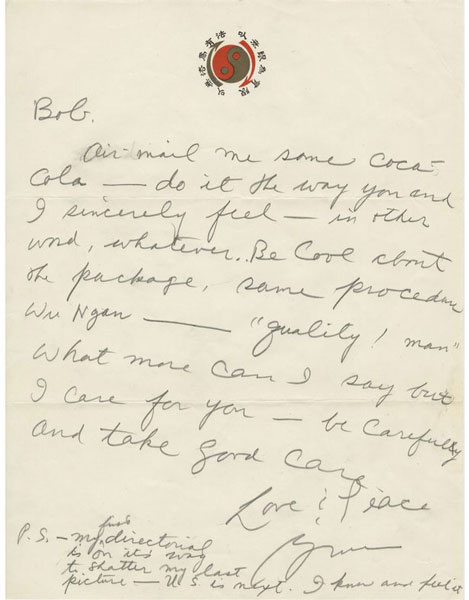 以無法為有法 以無限為有限
Bob.
Air-mail me some Coca-
Cola — do it the way you and
I sincerely feel — in other
word, whatever.. Be Cool about
the package, same procedure
Wu Ngan — "quality! man"
What more can I say but
I care for you — be carefully
and take good care
Love & Peace
first
P.S. — my directorial
is on it's way
to shatter my last
picture — U.S. is next. I know and feel it